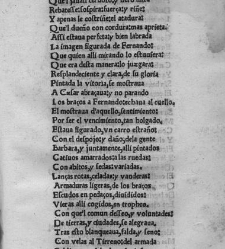 Y apenas le
Que'l dueño con
Assi estaua perfeta, y bien labrada
La imagen figurada de Fernando:
Que quien alli mirando lo estuuiera:
Que era desta manera lo juzgara:
Resplandeciente y clara, de su gloria
Pintada la vitoria, se mostraua
A Cesar abraçaua; y no parando
Los braços a Fernando echaua al cuello,
El mostraua d'aquello, sentimiento
Por ser el vencimiento, tan holgado.
Estaua figurado, vn carro estraño
Con el despojo y daño, dela gente
Barbara, y juntamente, alli pintados
Catiuos amarrados a las ruedas:
Con abitos, y sedas variadas,
Lanças rotas, celadas; y vanderas:
Armaduras ligeras, de los braços,
Escudos en pedaços, diuididos:
Vieras alli cogidos, en tropheo,
Con que'l comun desseo, y voluntades
De tierras, y ciudades, se alegraua,
Tras esto blanqueaua, falda, y seno:
Con velas al Tirreno del armada